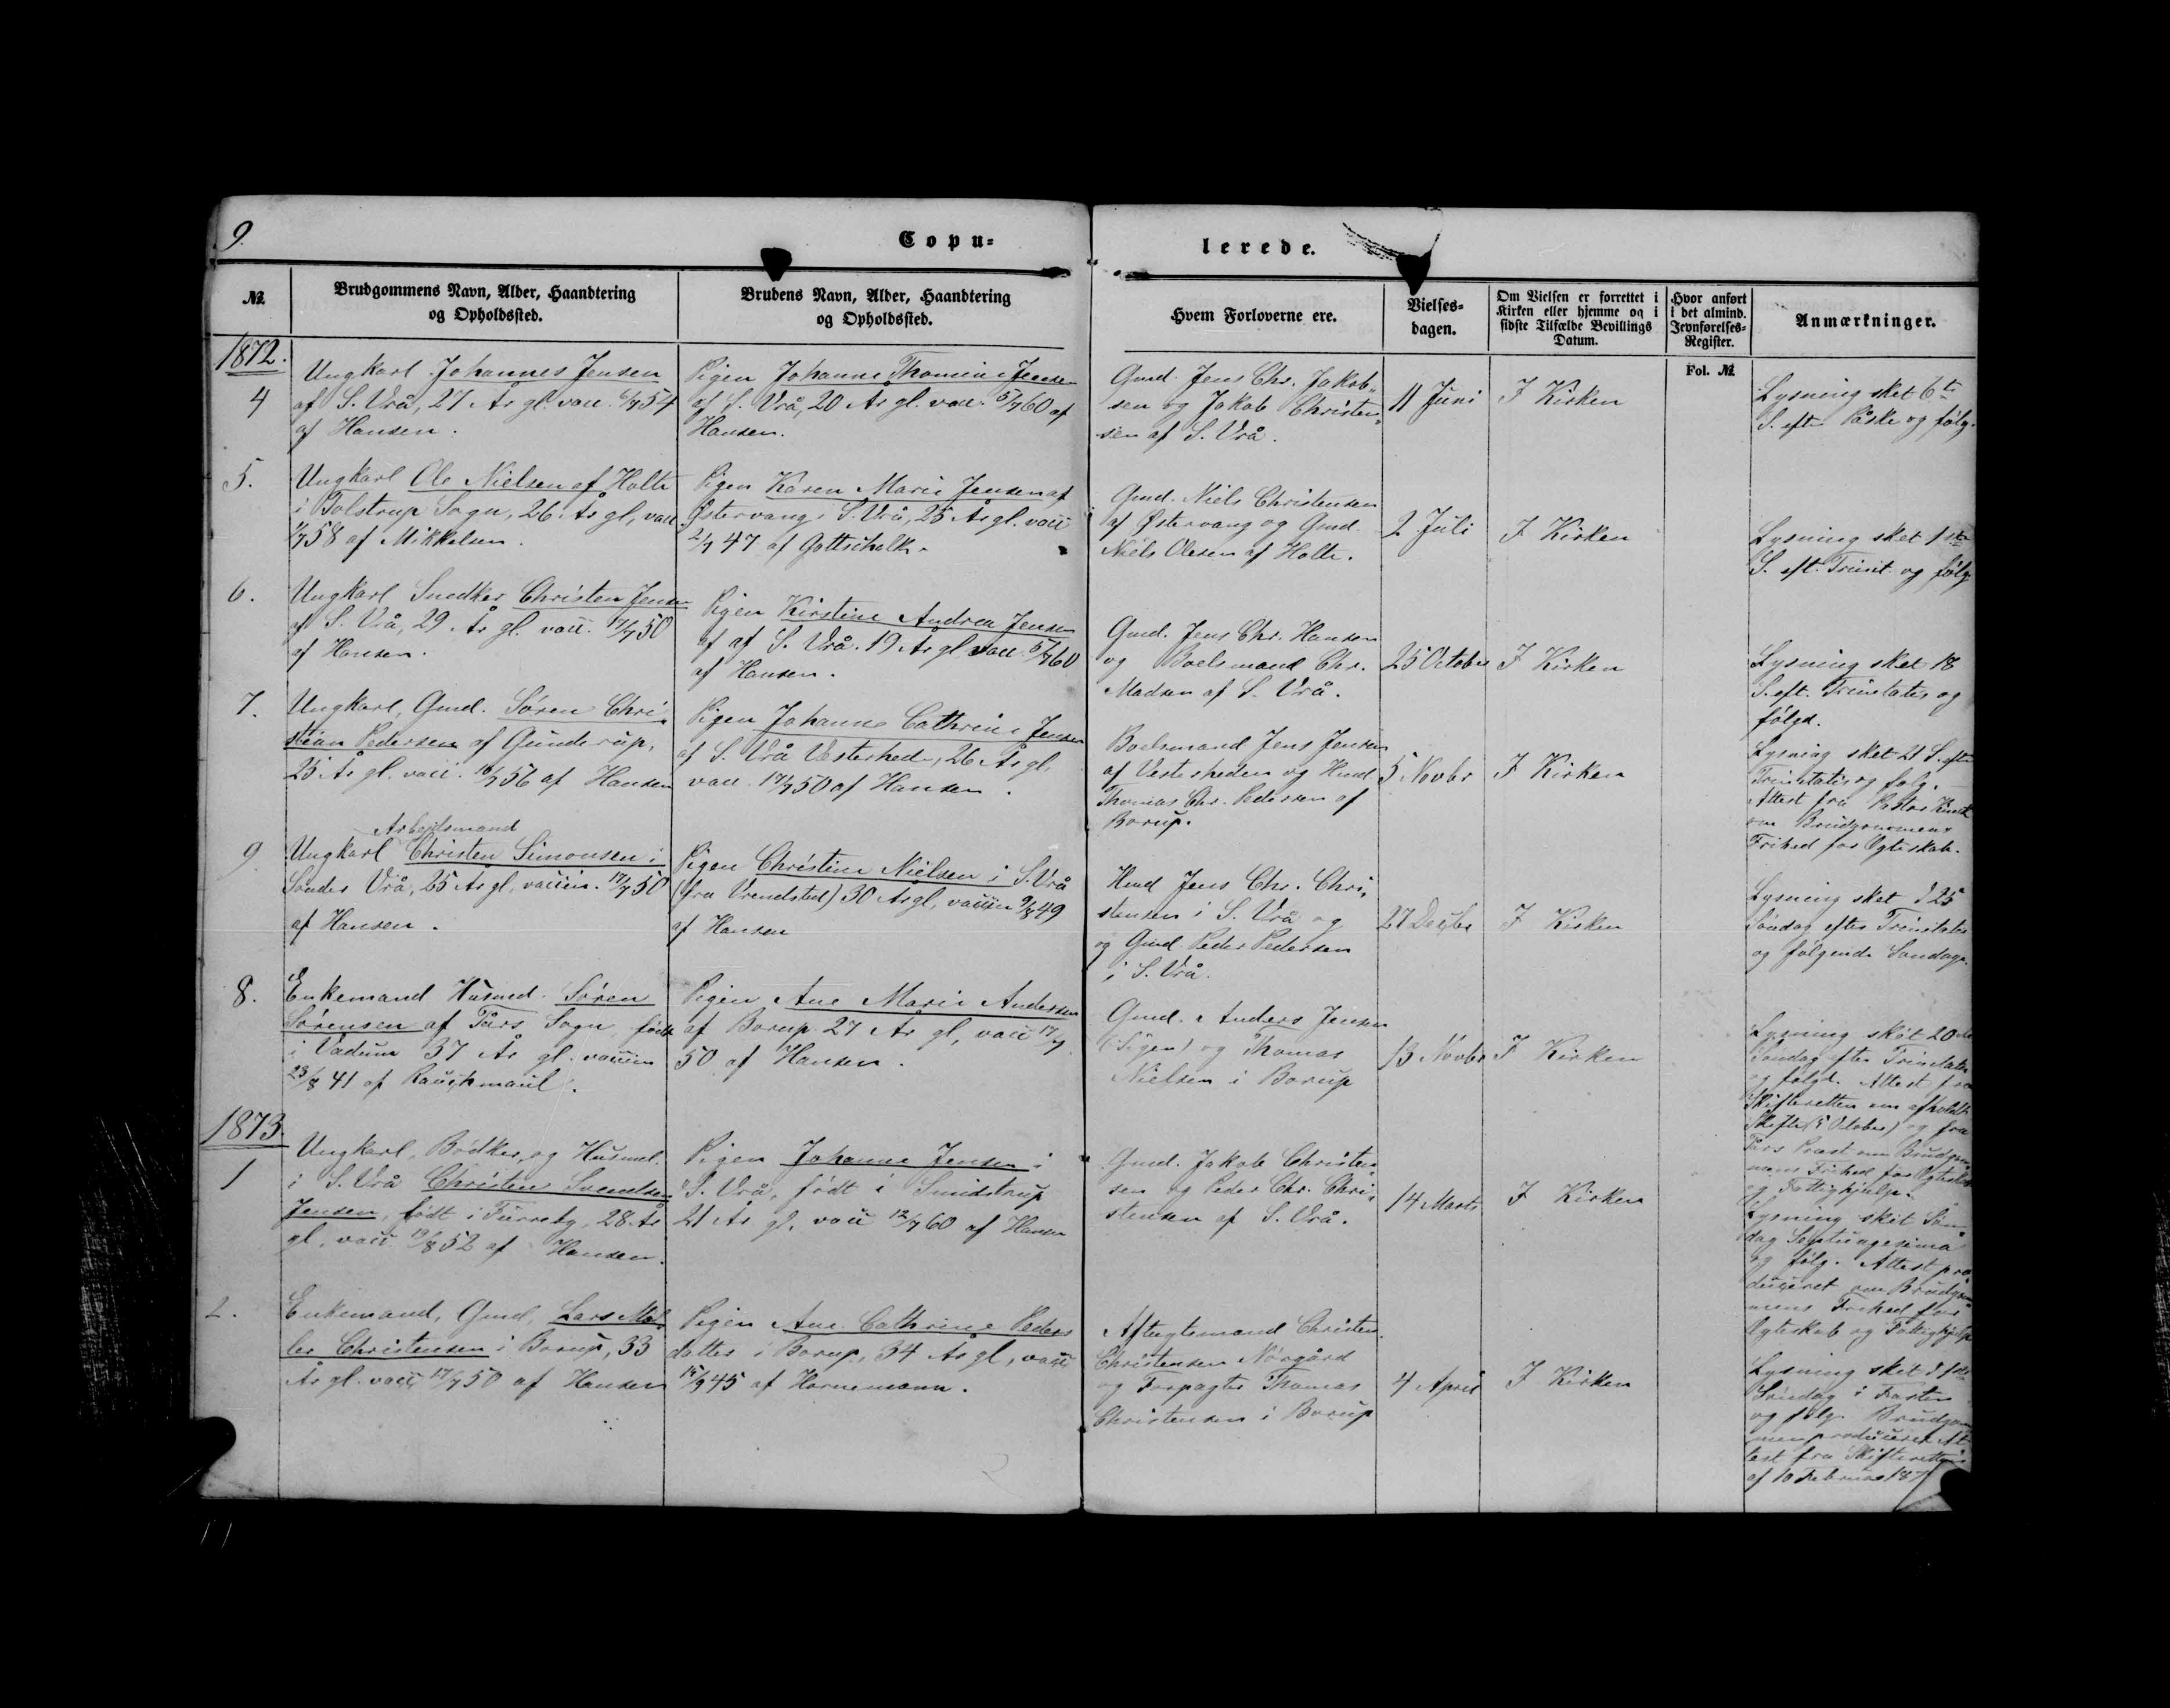 9.
Copu=
lerede.
№
Brudgommens Navn, Alder, Haandtering
og Opholdssted.
Brudens Navn, Alder, Haandtering
og Opholdssted.
Hvem Forloverne ere.
Vielses=
dagen.
Om Vielsen er forrettet i
Kirken eller hjemme og i
sidste Tilfælde Bevillings
Datum.
Hvor anført
i det almind.
Jevnførelses=
Register.
Fol. №
Anmærkninger.
1872.
4
Ungkarl Johannes Jensen
af S. Vrå, 27 År gl. vacc. 6/7 54
af Hansen.
Pigen Johanne Thomine Jensen
af S. Vrå, 20 År gl. vacc. 5/7 60 af
Hansen.
Gmd. Jens Chr. Jakob-
sen og Jakob Christen-
sen af S. Vrå.
11 Juni
I Kirken
Lysning sket 6te
S. eft. Påske og følg.
5.
Ungkarl Ole Nielsen af Holte
i Tolstrup Sogn, 26 År gl, vacc
58 af Mikkelsen.
Pigen Karen Marie Jensen af
Østervang S. Vrå, 25 År gl. vacc
2/7 47 af Gottschalk.
Gmd. Niels Christensen
af Østervang og Gmd.
Niels Olesen af Holte.
2 Juli
I Kirken
Lysning sket 1ste
S. eft. Trinit. og følg.
6.
Ungkarl Snedker Christen Jensen
af S. Vrå, 29 År gl. vacc. 17/7 50
af Hansen.
Pigen Kirstine Andrea Jensen
af af S. Vrå. 19 År gl vacc. 5/7 60
af Hansen.
Gmd. Jens Chr. Hansen
og Boelsmand Chr.
Madsen af S. Vrå.
25 October
I Kirken
Lysning sket 18
S. eft. Trinitatis og
følgd.
7.
Ungkarl, Gmd. Søren Chri-
stian Pedersen af Gunderup,
25 År gl. vacc. 56 af Hansen
Pigen Johanne Cathrine Jensen
af S. Vrå Vesterhede, 26 År gl,
vacc. 17/7 50 af Hansen.
Boelsmand Jens Jensen
af Vesterheden og Hmd
Thomas Chr. Pedersen af
Borup.
5 Novbr
I Kirken
Lysning sket 21 S. eft
Trinitatis og følg.
Attest fra Pastor
om Brudgommens
Frihed for Ægteskab.
9
Arbejdsmand
Ungkarl Christen Simonsen i
Sønder Vrå, 25 År gl, vaccin. 17/7 50
af Hansen.
Pigen Christine Nielsen i S. Vrå
(fra Vrendsted) 30 År gl, vaccin 9/8 49
af Hansen
Hmd Jens Chr. Chri-
stensen i S. Vrå og
og Gmd. Peder Pedersen
i S. Vrå.
27 Decbr
I Kirken
Lysning sket d 25
Søndag efter Trinitatis
og følgende Søndage.
8.
Enkemand Husmd. Søren
Sørensen af Tårs Sogn, født
i Vadum 37 År gl. vaccin
23/8 41 af
Pigen Ane Marie Andersen
af Borup 27 År gl, vacc 17/7
50 af Hansen.
Gmd. Anders Jensen
og Thomas
Nielsen i Borup
13 Novbr
I Kirken
Lysning sket 20de
Søndag efter Trinitatis
og følgd. Attest fra
Skifteretten om afholdt
Skifte (5 October) og fra
Tårs Præst om Brudgom-
mens Frihed for Ægteskab
og Fattighjælp.
1873.
1
Ungkarl, Bødker, og Husmd.
i S. Vrå Christen Svendsen
Jensen, født i Furreby, 28 År
gl. vacc 19/8 52 af Hansen.
Pigen Johanne Jensen i
S. Vrå, født i Smidstrup
21 År gl. vacc 12/7 60 af Hansen
Gmd. Jakob Christen-
sen og Peder Chr. Chri-
stensen af S. Vrå.
14 Marts
I Kirken
Lysning sket Søn-
dag Septuagesima
og følg. Attest pro-
duceret om Brudgom-
mens Frihed for
Ægteskab og Fattighjælp
2.
Enkemand, Gmd, Lars Møl-
ler Christensen i Borup, 33
År gl. vacc, 17/7 50 af Hansen
Pigen Ane Cathrine Peders
datter i Borup, 34 År gl, vacc
15/9 45 af Hornemann.
Aftægtsmand Christen
Christensen Nørgård
og Forpagter Thomas
Christensen i Borup
4 April
I Kirken
Lysning sket d 1ste
Søndag i Fasten
og følg. Brudgom-
men producerer At-
test fra Skifteretten
af 10 Februar 187